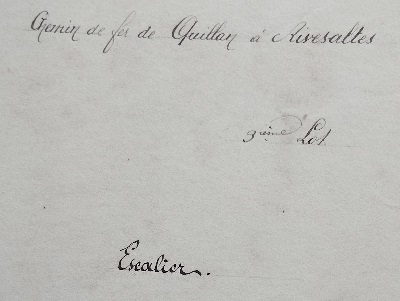 Chemin de fer de Quillan à Rivesaltes
3ième Lot
Escalier.